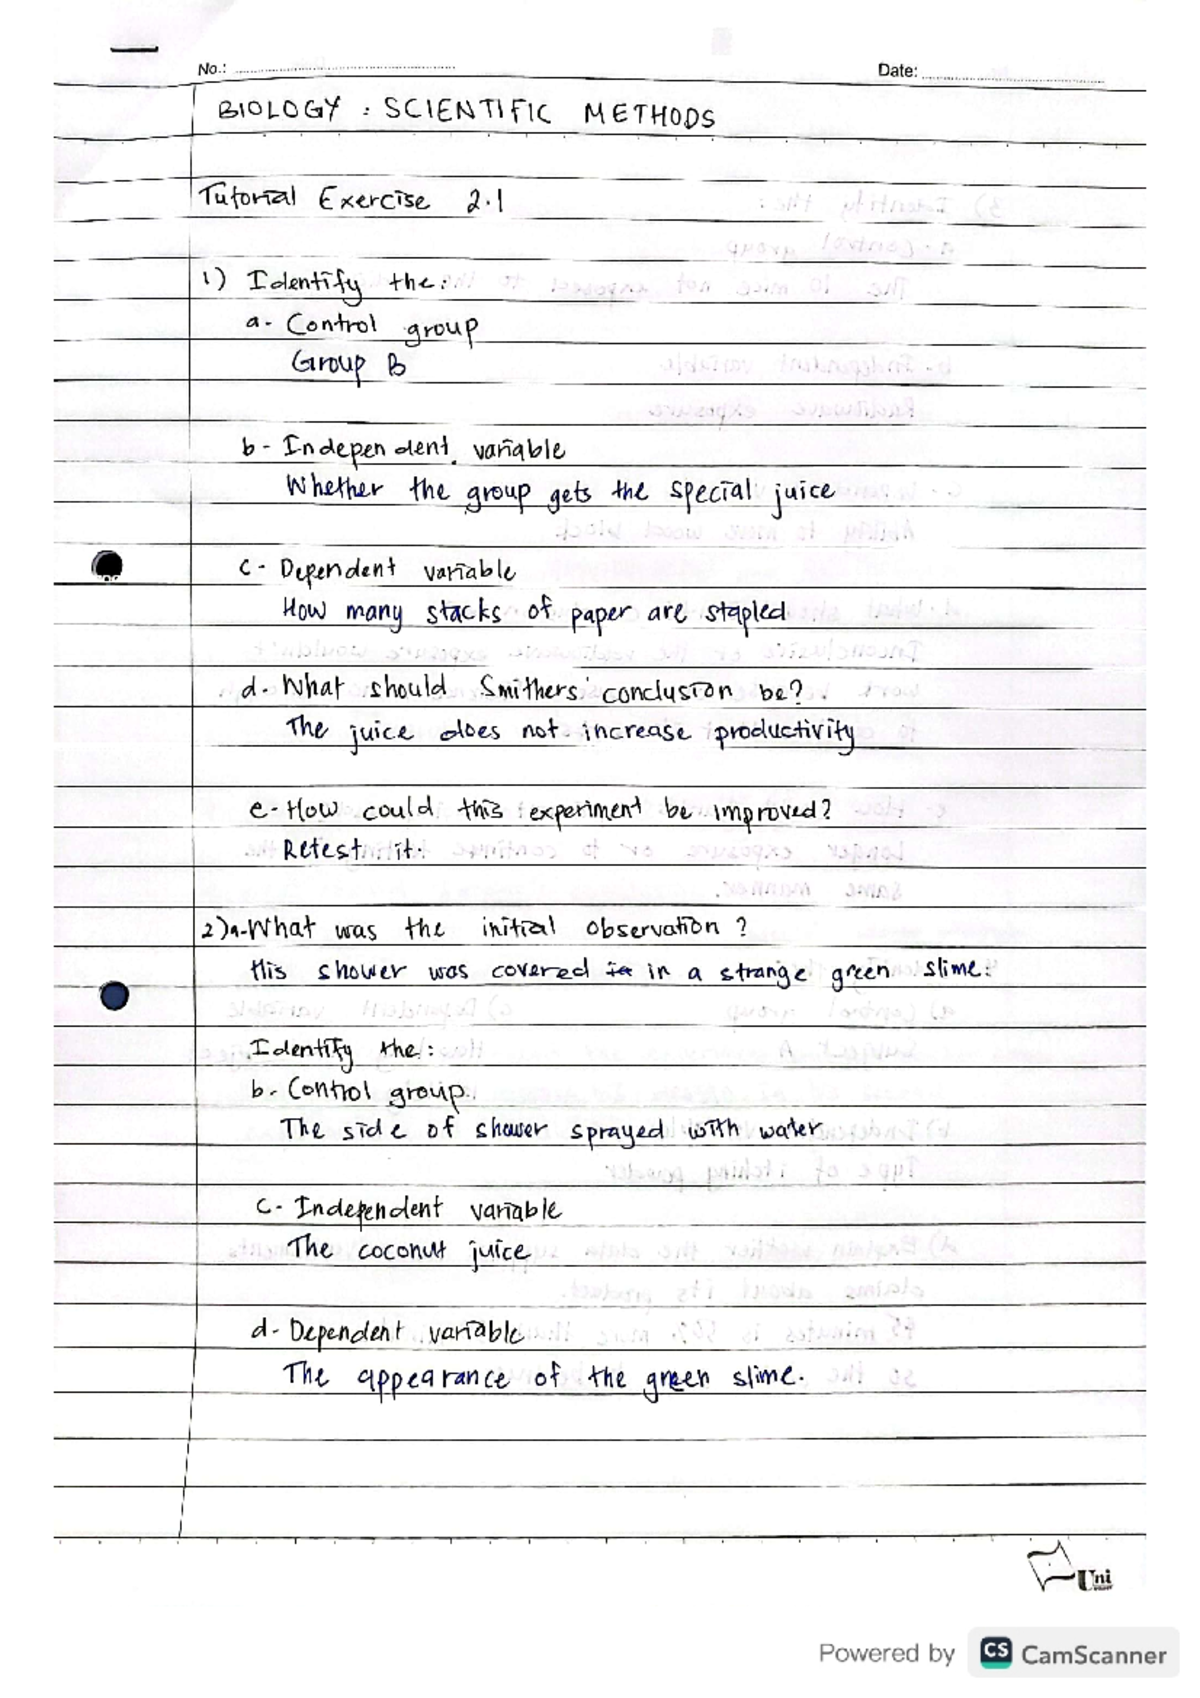 No.:
Date:
BIOLOGY : SCIENTIFIC METHODS
Tutorial Exercise 2.1
1) Identify the:
a- Control group
Group B
b- Independent variable
Whether the group gets the special juice
c- Dependent variable
How many stacks of paper are stapled
d. What should Smithers' conclusion be?
The juice does not increase productivity
e- How could this experiment be improved?
Retest it.
2)a-What was the initial observation ?
His shower was covered in a strange green slime.
Identify the:
b- Control group
The side of shower sprayed with water
c- Independent variable
The coconut juice
d- Dependent variable
The appearance of the green slime.
Uni
Powered by CS CamScanner